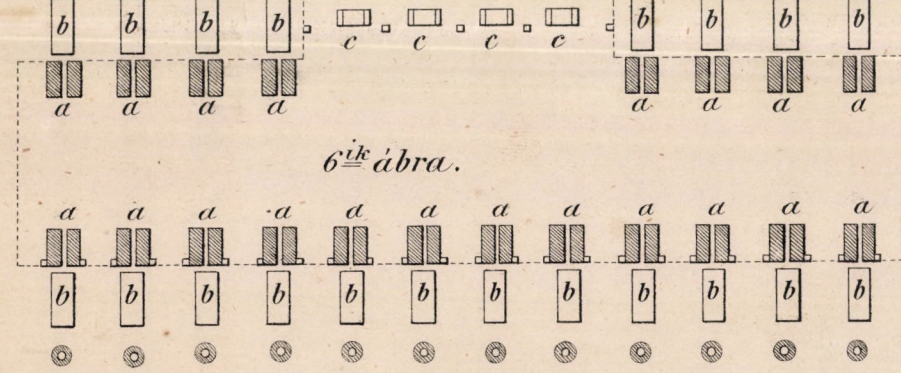 b b b b b b b b
c c c c
a a a a a a a a
6ik ábra.
a a a a a a a a a a a a
b b b b b b b b b b b b